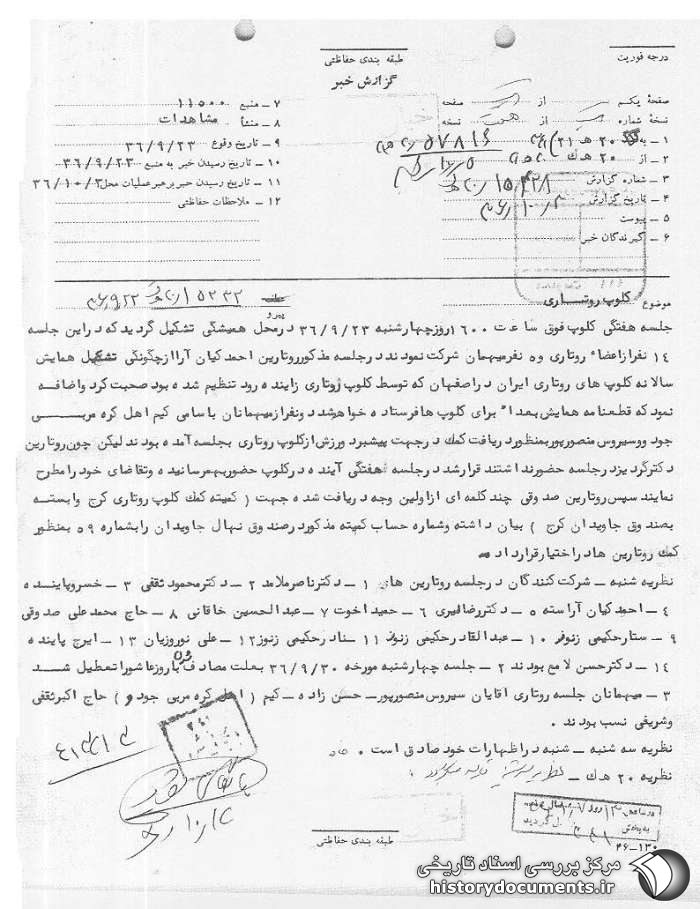 درجه فوریت
طبقه بندی حفاظتی
گزارش خبر
صفحهٔ یکم از صفحه
نسخهٔ شماره از نسخه
۱ - به ۲۰ هـ ۲۱
۲ - از ۲۰ هـ ك
۳ - شماره گزارش
۴ - تاریخ گزارش
۵ - پیوست
۶ - گیرندگان خبر
۷ - منبع ۱۱۵۰۰
۸ - منشأ مشاهدات
۹ - تاریخ وقوع ۳۶/۹/۲۳
۱۰ - تاریخ رسیدن خبر به منبع ۳۶/۹/۲۳
۱۱ - تاریخ رسیدن خبر برهبر عملیات محل ۳۶/۱۰/۳
۱۲ - ملاحظات حفاظتی
موضوع کلوپ روتاری پیرو
جلسه هفتگی کلوپ فوق ساعت ۱۶۰۰ روز چهارشنبه ۳۶/۹/۲۳ در محل همیشگی تشکیل گردید که در این جلسه
۱۴ نفر از اعضاء روتاری و ۵ نفر میهمان شرکت نمودند در جلسه مذکور روتارین احمد کیان آرا از چگونگی تشکیل همایش
سالانه کلوپ های روتاری ایران در اصفهان که توسط کلوپ روتاری زاینده رود تنظیم شده بود صحبت کرد و اضافه
نمود که قطعنامه همایش بعداً برای کلوپ ها فرستاده خواهد شد دو نفر از میهمانان باسامی کیم اهل کره مربی
جودو و سیروس منصورپور بمنظور دریافت کمك در جهت پیشبرد ورزش از کلوپ روتاری بجلسه آمده بودند لیکن چون روتارین
دکتر گرد یزد رجلسه حضور نداشتند قرار شد در جلسه هفتگی آینده در کلوپ حضور بهم رسانیده و تقاضای خود را مطرح
نمایند سپس روتارین صدوقی چند کلمه ای از اولین وجه دریافت شده جهت ( کمیته کمك کلوپ روتاری کرج وابسته
بصندوق جاویدان کرج ) بیان داشته و شماره حساب کمیته مذکور در صندوق نهال جاویدان را بشماره ۵۹ بمنظور
کمك روتارین ها در اختیار قرار داد .
نظریه شنبه - شرکت کنندگان در جلسه روتارین های ۱ - دکتر ناصر ملامد ۲ - دکتر محمود ثقفی ۳ - خسرو پاینده
۴ - احمد کیان آراسته ۵ - دکتر رضا لیری ۶ - حمید اخوت ۷ - عبدالحسین خاقانی ۸ - حاج محمد علی صدوقی
۹ - ستار حکیمی زنوفر ۱۰ - عبدالقادر حکیمی زنوز ۱۱ - نادر حکیمی زنوز ۱۲ - علی نوروزیان ۱۳ - ایرج پاینده
۱۴ - دکتر حسن لامع بودند ۲ - جلسه چهارشنبه مورخه ۳۶/۹/۳۰ بعلت مصادف شدن با روز عاشورا تعطیل شد
۳ - میهمانان جلسه روتاری آقایان سیروس منصورپور - حسن زاده - کیم ( اهل کره مربی جودو ) حاج اکبر ثقفی
و شریفی نسب بودند .
نظریه سه شنبه - شنبه در اظهارات خود صادق است .
نظریه ۲۰ هـ ك -
طبقه بندی حفاظتی
۴۶-۱۳۰
مرکز بررسی اسناد تاریخی
historydocuments.ir